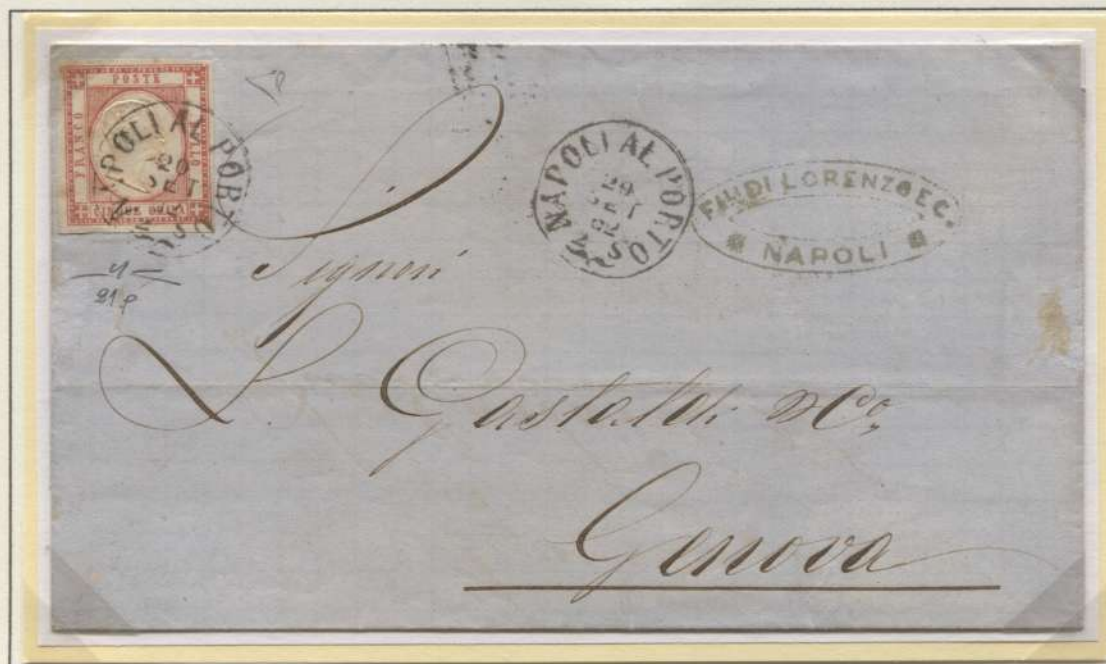 POSTE
FRANCO
BOLLO
NAPOLI AL PORTO
20
SET
NAPOLI AL PORTO
20
SET
S
FILLI DI LORENZO E C.
NAPOLI
Signori
L. Gastaldi & Co,
Genova